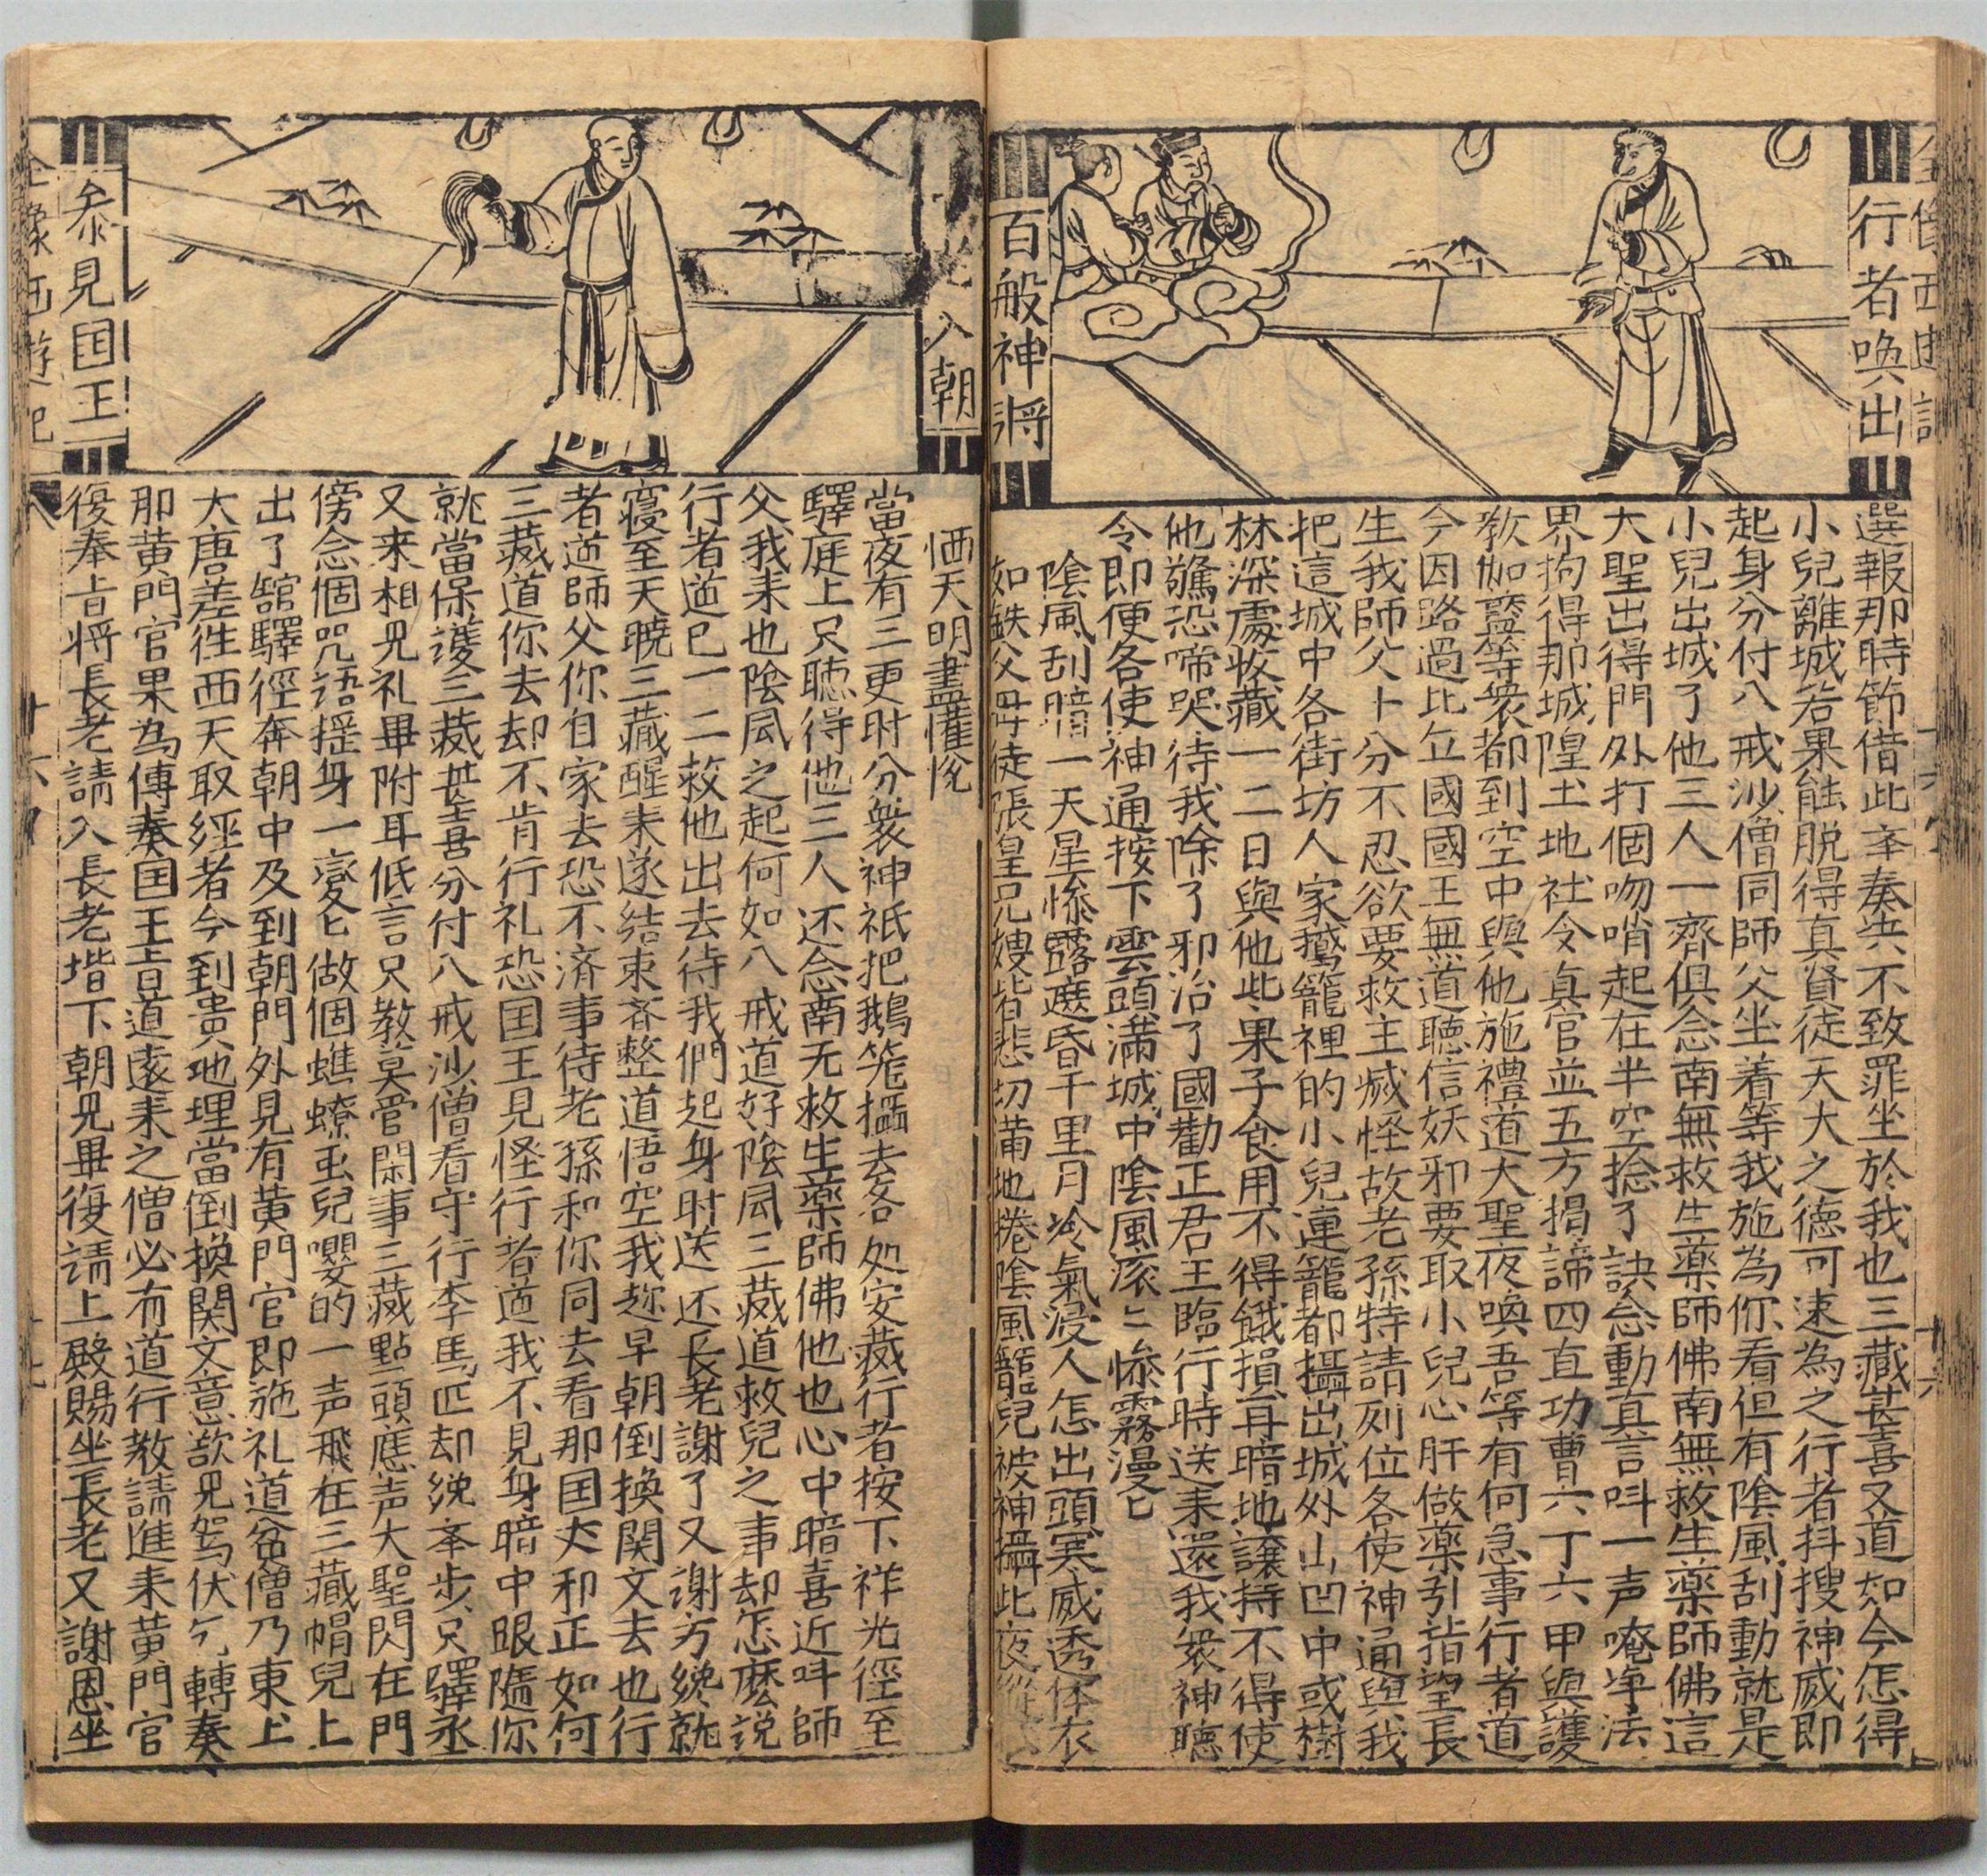 行者喚出
百般神將
選報那時節借此辛奏共不致罪坐於我也三藏甚喜又道如今怎得
小兒離城若果能脱得真賢徒天大之德可速為之行者抖搜神威即
起身分付八戒沙僧同師父坐着等我施為你看但有陰風刮動就是
小兒出城了他三人一齊俱念南無救生藥師佛南無救生藥師佛這
大聖出得門外打個吻哨起在半空捻了訣念動真言呌一声唵净法
界拘得那城隍土地社令真官並五方揭諦四直功曹六丁六甲與護
教伽藍等衆都到空中與他施禮道大聖夜喚吾等有何急事行者道
今因路過比丘國國王無道聽信妖邪要取小兒心肝做藥引指望長
生我師父十分不忍欲要救主滅怪故老孫特請列位各使神通與我
把這城中各街坊人家鵝籠裡的小兒連籠都攝出城外山凹中或樹
林深處收藏一二日與他些果子食用不得餓損再暗地讓持不得使
他驚恐啼哭待我除了邪治了國勸正君王臨行時送来還我衆神聽
令即便各使神通按下雲頭滿城中陰風滚〻慘霧漫〻
陰風刮暗一天星慘霧遮昏千里月冷氣浸人怎出頭寒威透体衣
如鉄父母徒張皇兄嫂皆悲切满地捲陰風籠兒被神攝此夜縱
入朝
參見国王
恓天明盡懽悅
當夜有三更时分衆神祇把鵝笼攝去各处安藏行者按下祥光徑至
驛庭上只聽得他三人还念南无救生藥師佛他也心中暗喜近呌師
父我来也陰风之起何如八戒道好陰风三藏道救兒之事却怎麽説
行者道已一二救他出去待我們起身时送还長老謝了又謝方纔就
寝至天曉三藏醒来遂結束齐整道悟空我趂早朝倒換関文去也行
者道師父你自家去恐不济事待老孫和你同去看那国大邪正如何
三藏道你去却不肯行礼恐国王見怪行者道我不見身暗中跟隨你
就當保護三藏甚喜分付八戒沙僧看守行李馬匹却纔奉步只驛丞
又来相見礼畢附耳低言只教莫管閑事三藏點頭應声大聖閃在門
傍念個咒語揺身一變〻做個蟭蟟虫兒嚶的一声飛在三藏帽兒上
出了舘驛徑奔朝中及到朝門外見有黄門官即施礼道貧僧乃東土
大唐差徃西天取經者今到貴地理當倒換関文意欲見駕伏乞轉奏
那黄門官果為傳奏国王旨道遠来之僧必有道行教請進来黄門官
復奉旨将長老請入長老堦下朝見畢復請上殿賜坐長老又謝恩坐